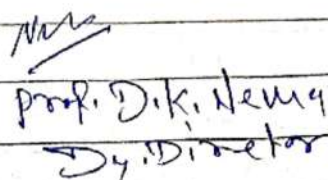 Prof. D.K. Nema
Dy. Director